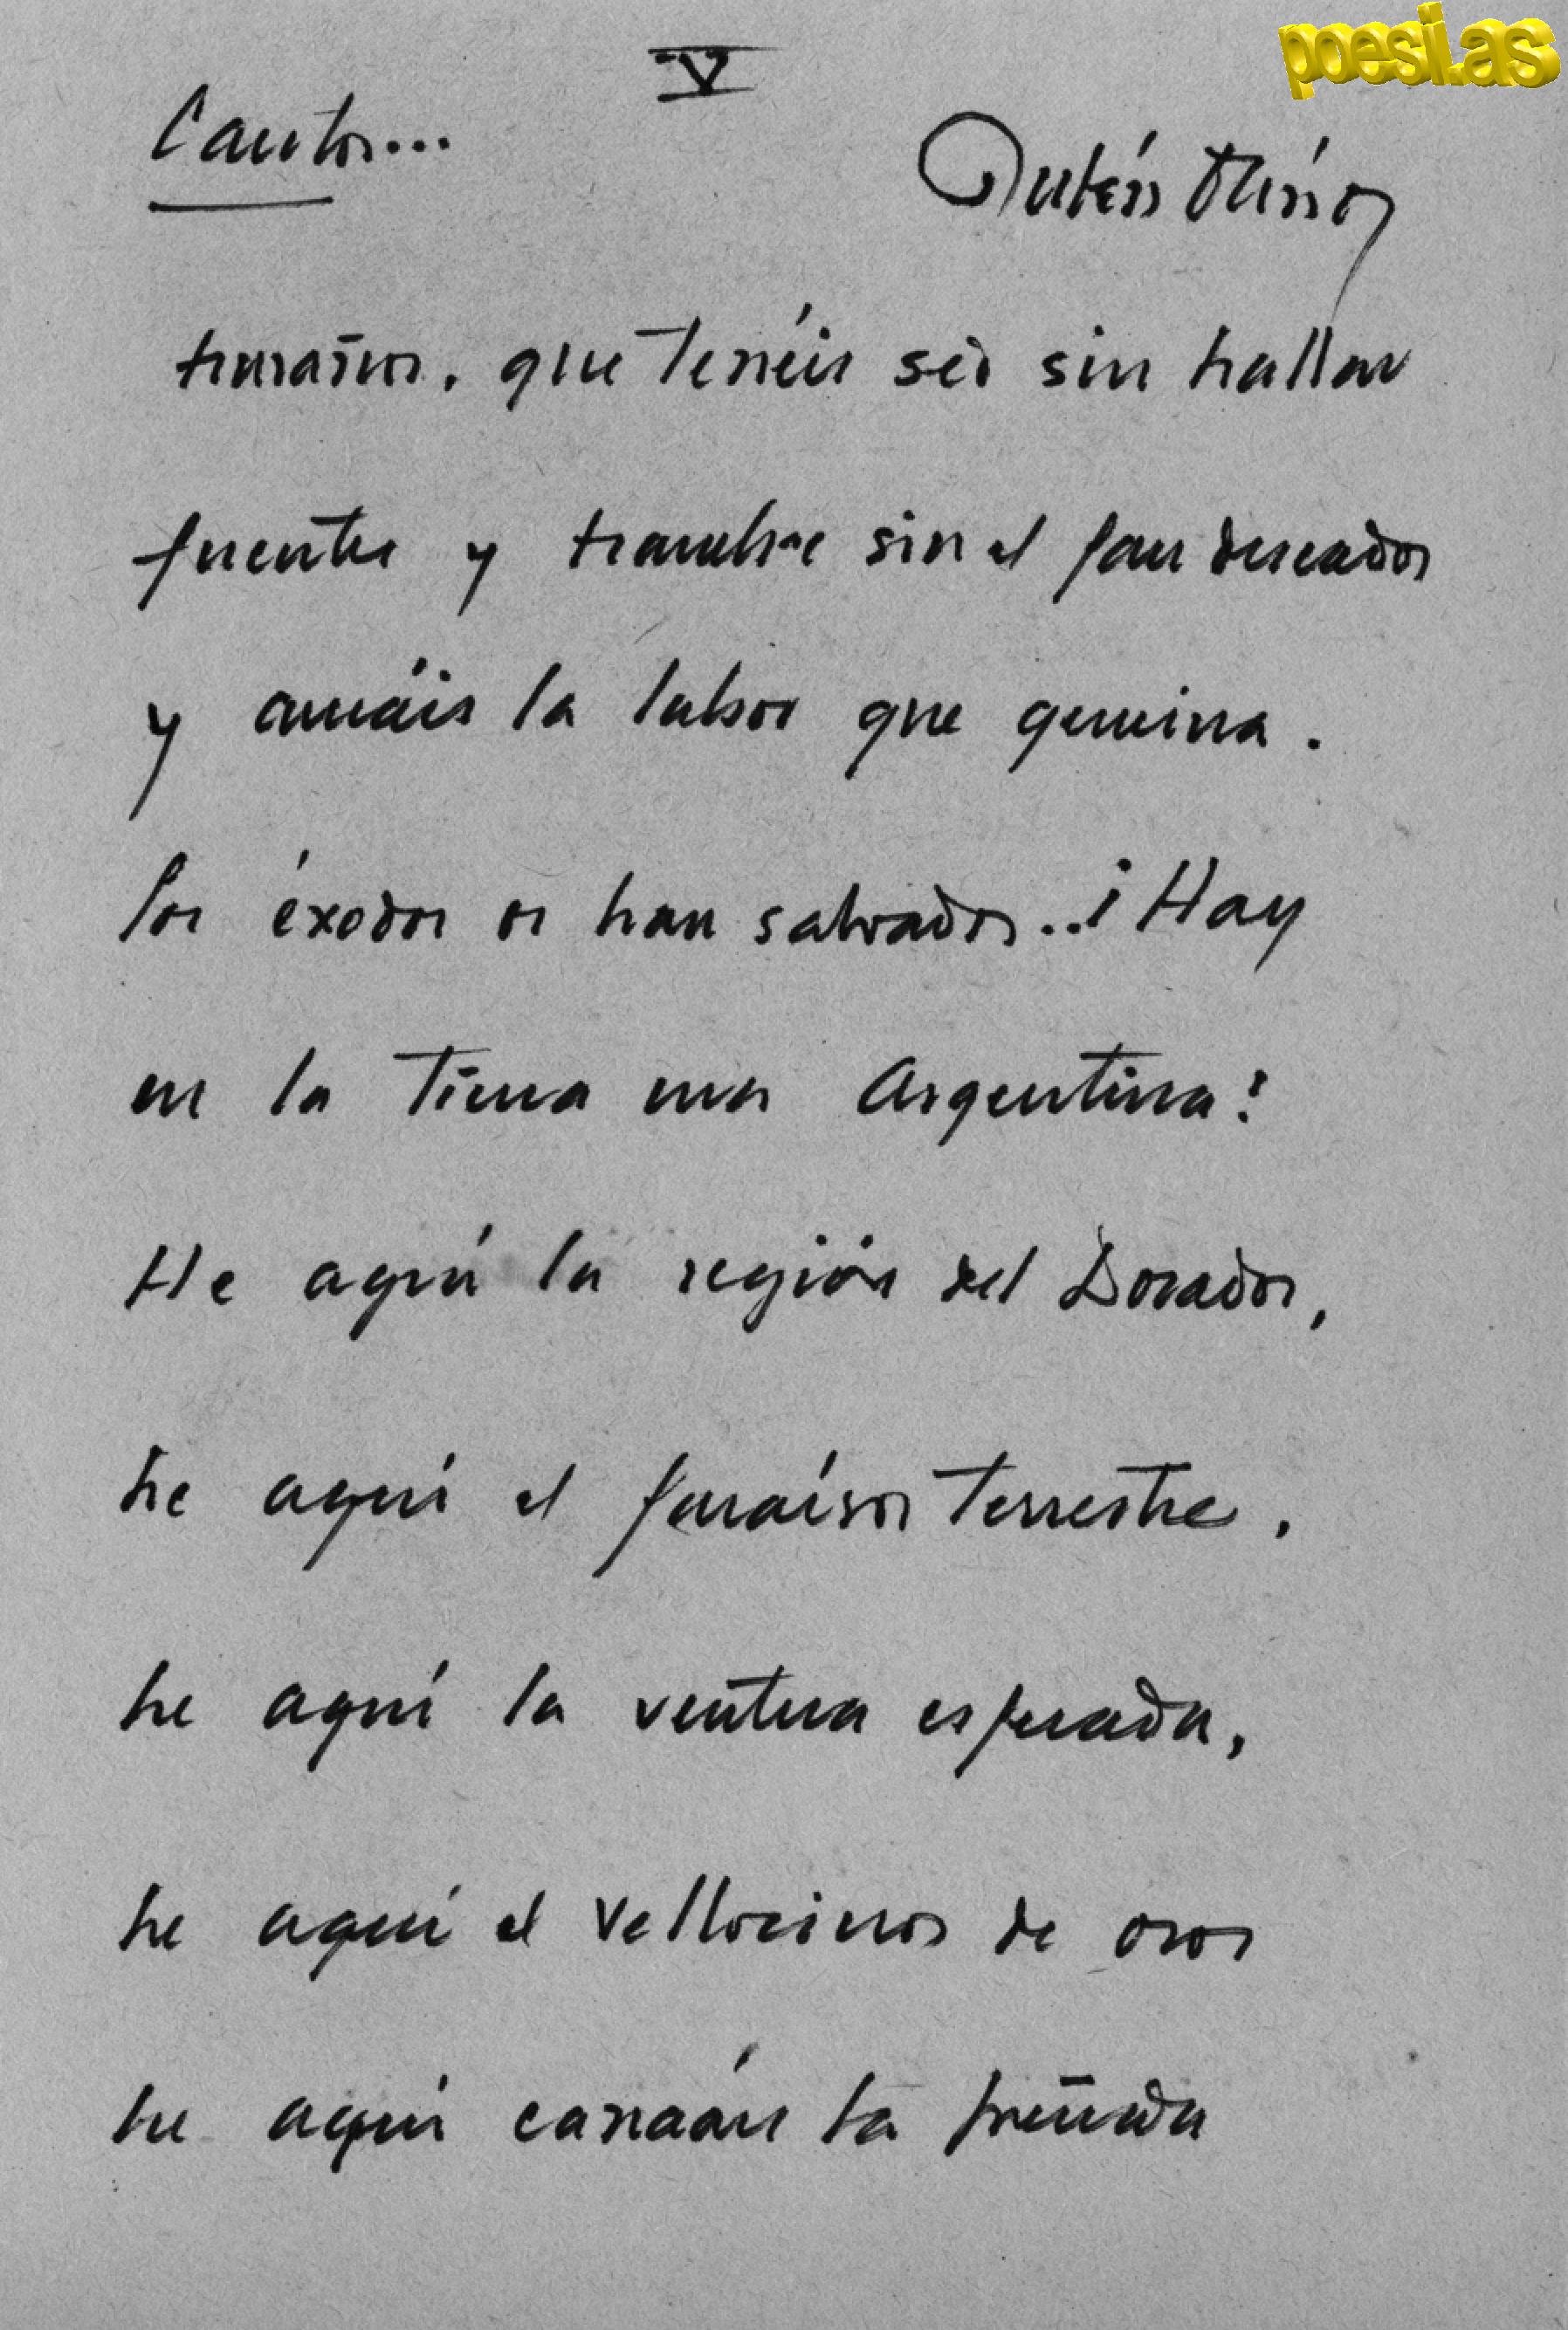 poesi.as
V
Canto...
Rubén Darío
humano, que tenéis sed sin hallar
fuente y hambre sin el pan deseado
y amáis la labor que germina.
Los éxodos os han salvado...¡Hay
en la tierra una Argentina!
He aquí la región del Dorado,
he aquí el paraíso terrestre,
he aquí la ventura esperada,
he aquí el Vellocino de oro
he aquí canaán la preñada